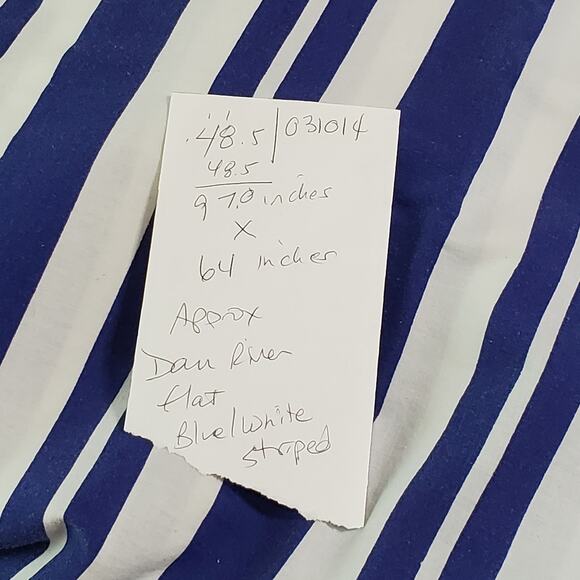 48.5 | 031014
48.5
97.0 inches
X
64 inches
Approx
Dan River
flat
Blue/white
striped